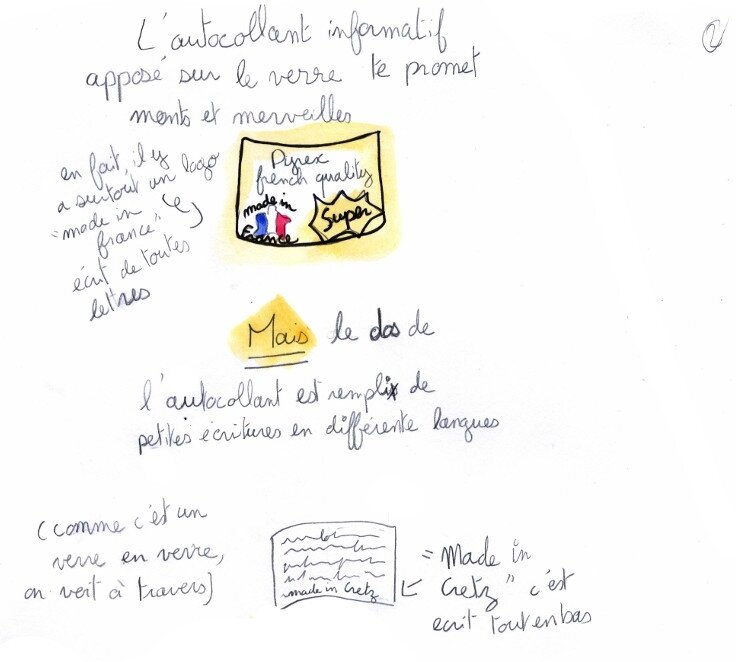 2
L'autocollant informatif
apposé sur le verre te promet
monts et merveilles
en fait, il y
a surtout un logo
"made in
france"
écrit de toutes
lettres
Pyrex
french quality
made in
France
Super
Mais le dos de
l'autocollant est rempli de
petites écritures en différente langues
(comme c'est un
verre en verre,
on voit à travers)
made in Cretz
"Made in
Cretz" c'est
ecrit tout en bas